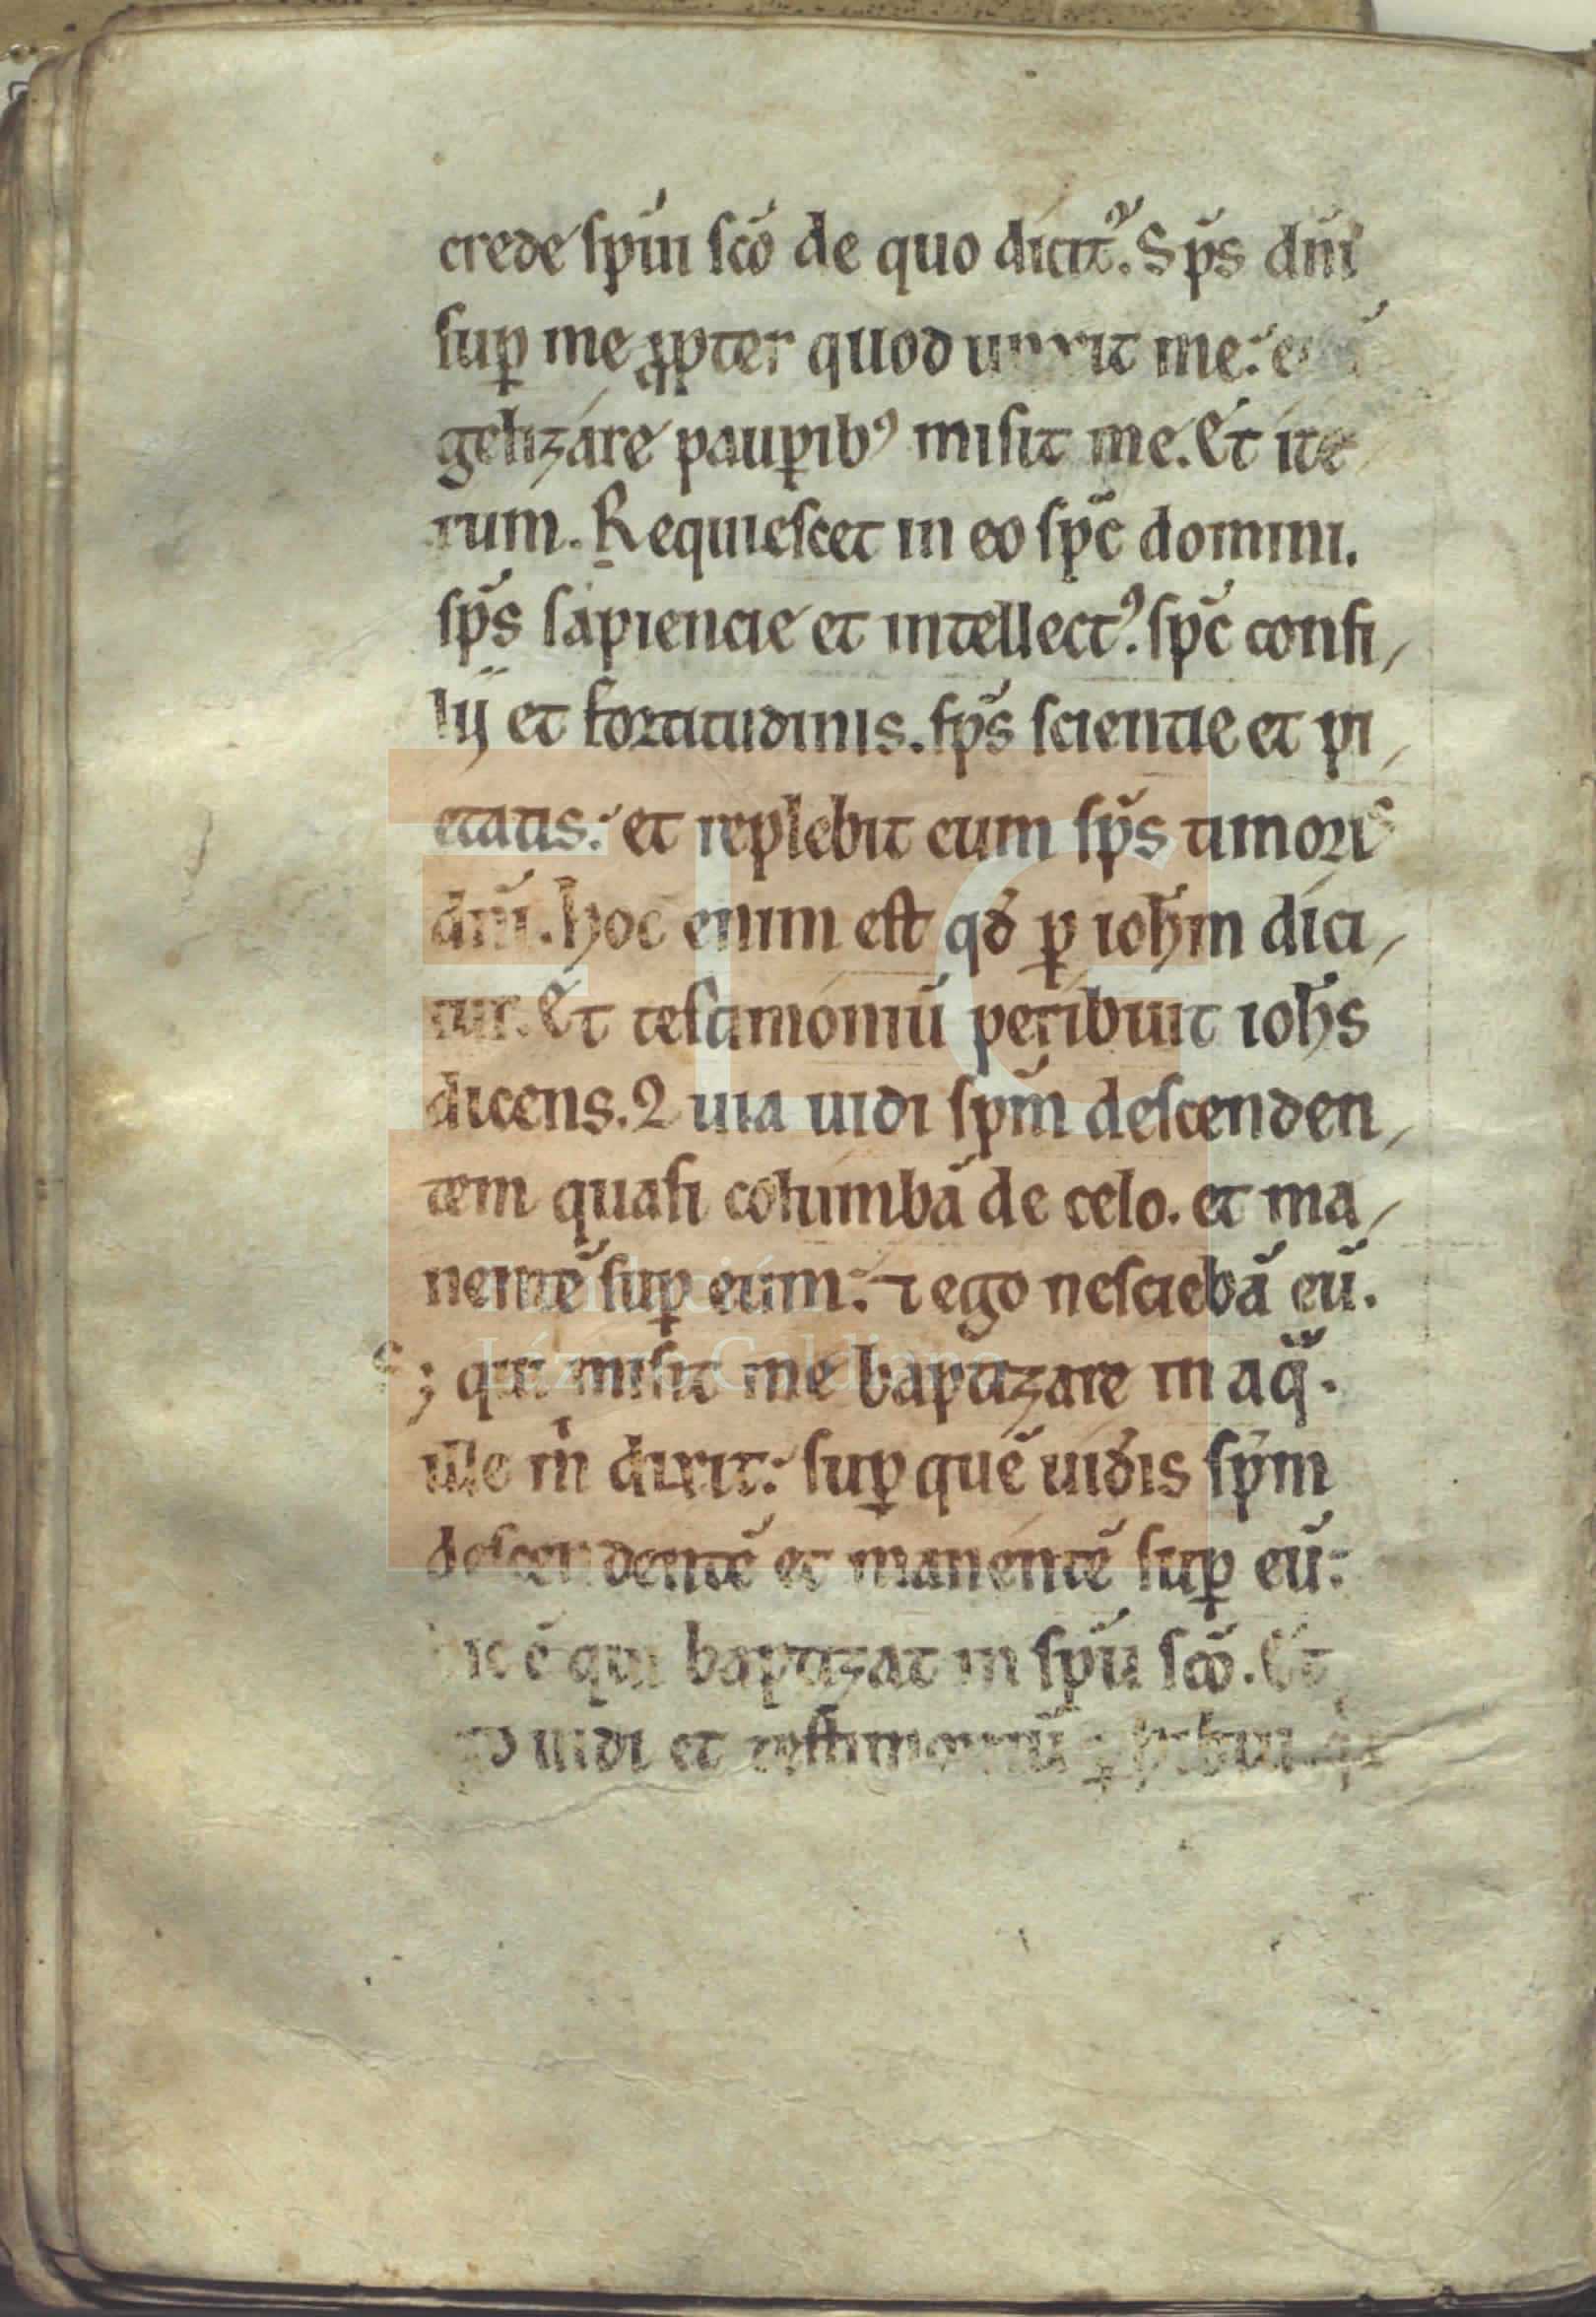 crede sp̄ui sc̄o de quo dicit᷑. Sp̄s dn̄i
suꝑ me ꝓpter quod unxit me:
gelizáre pauꝑibꝰ misit me. Et ite
rum. Requiescet in eo sp̄c domini.
sp̄s sapiencie et intellectꝰ. sp̄c consi,
lij et fortitudinis. sp̄s scientie et pi,
etatis: et replebit eum sp̄s timoris
dn̄i. hoc enim est qđ ꝑ ioh̄m dici,
tur. Et testimóniū peribuit ioh̄s
dicens. Quia uidi sp̄m descenden,
tem quasi columbā de celo. et ma,
nentē suꝑ eum: ⁊ ego nesciebā eū.
s; qui misit me baptizare in aq̄.
ille m̍ dixit: suꝑ quē uiđis sp̄m
descendentē et manéntē suꝑ eū:
hic ē qui baptizat in sp̄u sc̄o. Et
uidi et testimoniū
Fundación
Lázaro Galdiano